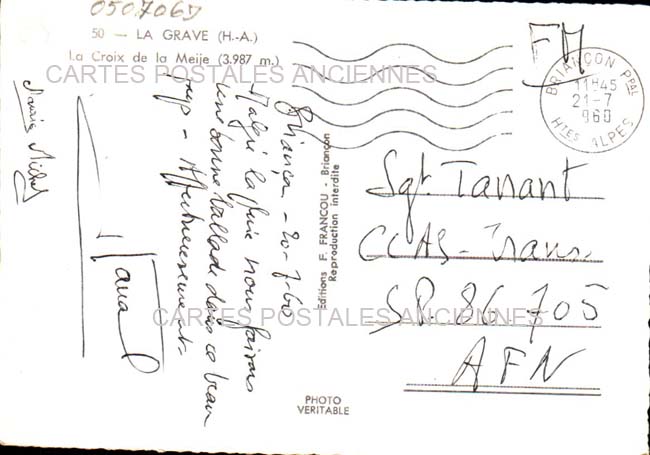 050706D
50 — LA GRAVE (H.-A.)
La Croix de la Meije (3.987 m.)
CARTES POSTALES ANCIENNES
FM
BRIANÇON Ppal
11H45
21-7
1960
Htes ALPES
Briançon - 20-7-60
Malgré la pluie nous faisons
une bonne ballade dans ce beau
pays - Affectueusement -
Editions F. FRANCOU - Briançon
Reproduction interdite
Sgt. Tanant
CCAS - Trans.
SP 86 705
AFN
CARTES POSTALES ANCIENNES
PHOTO
VERITABLE